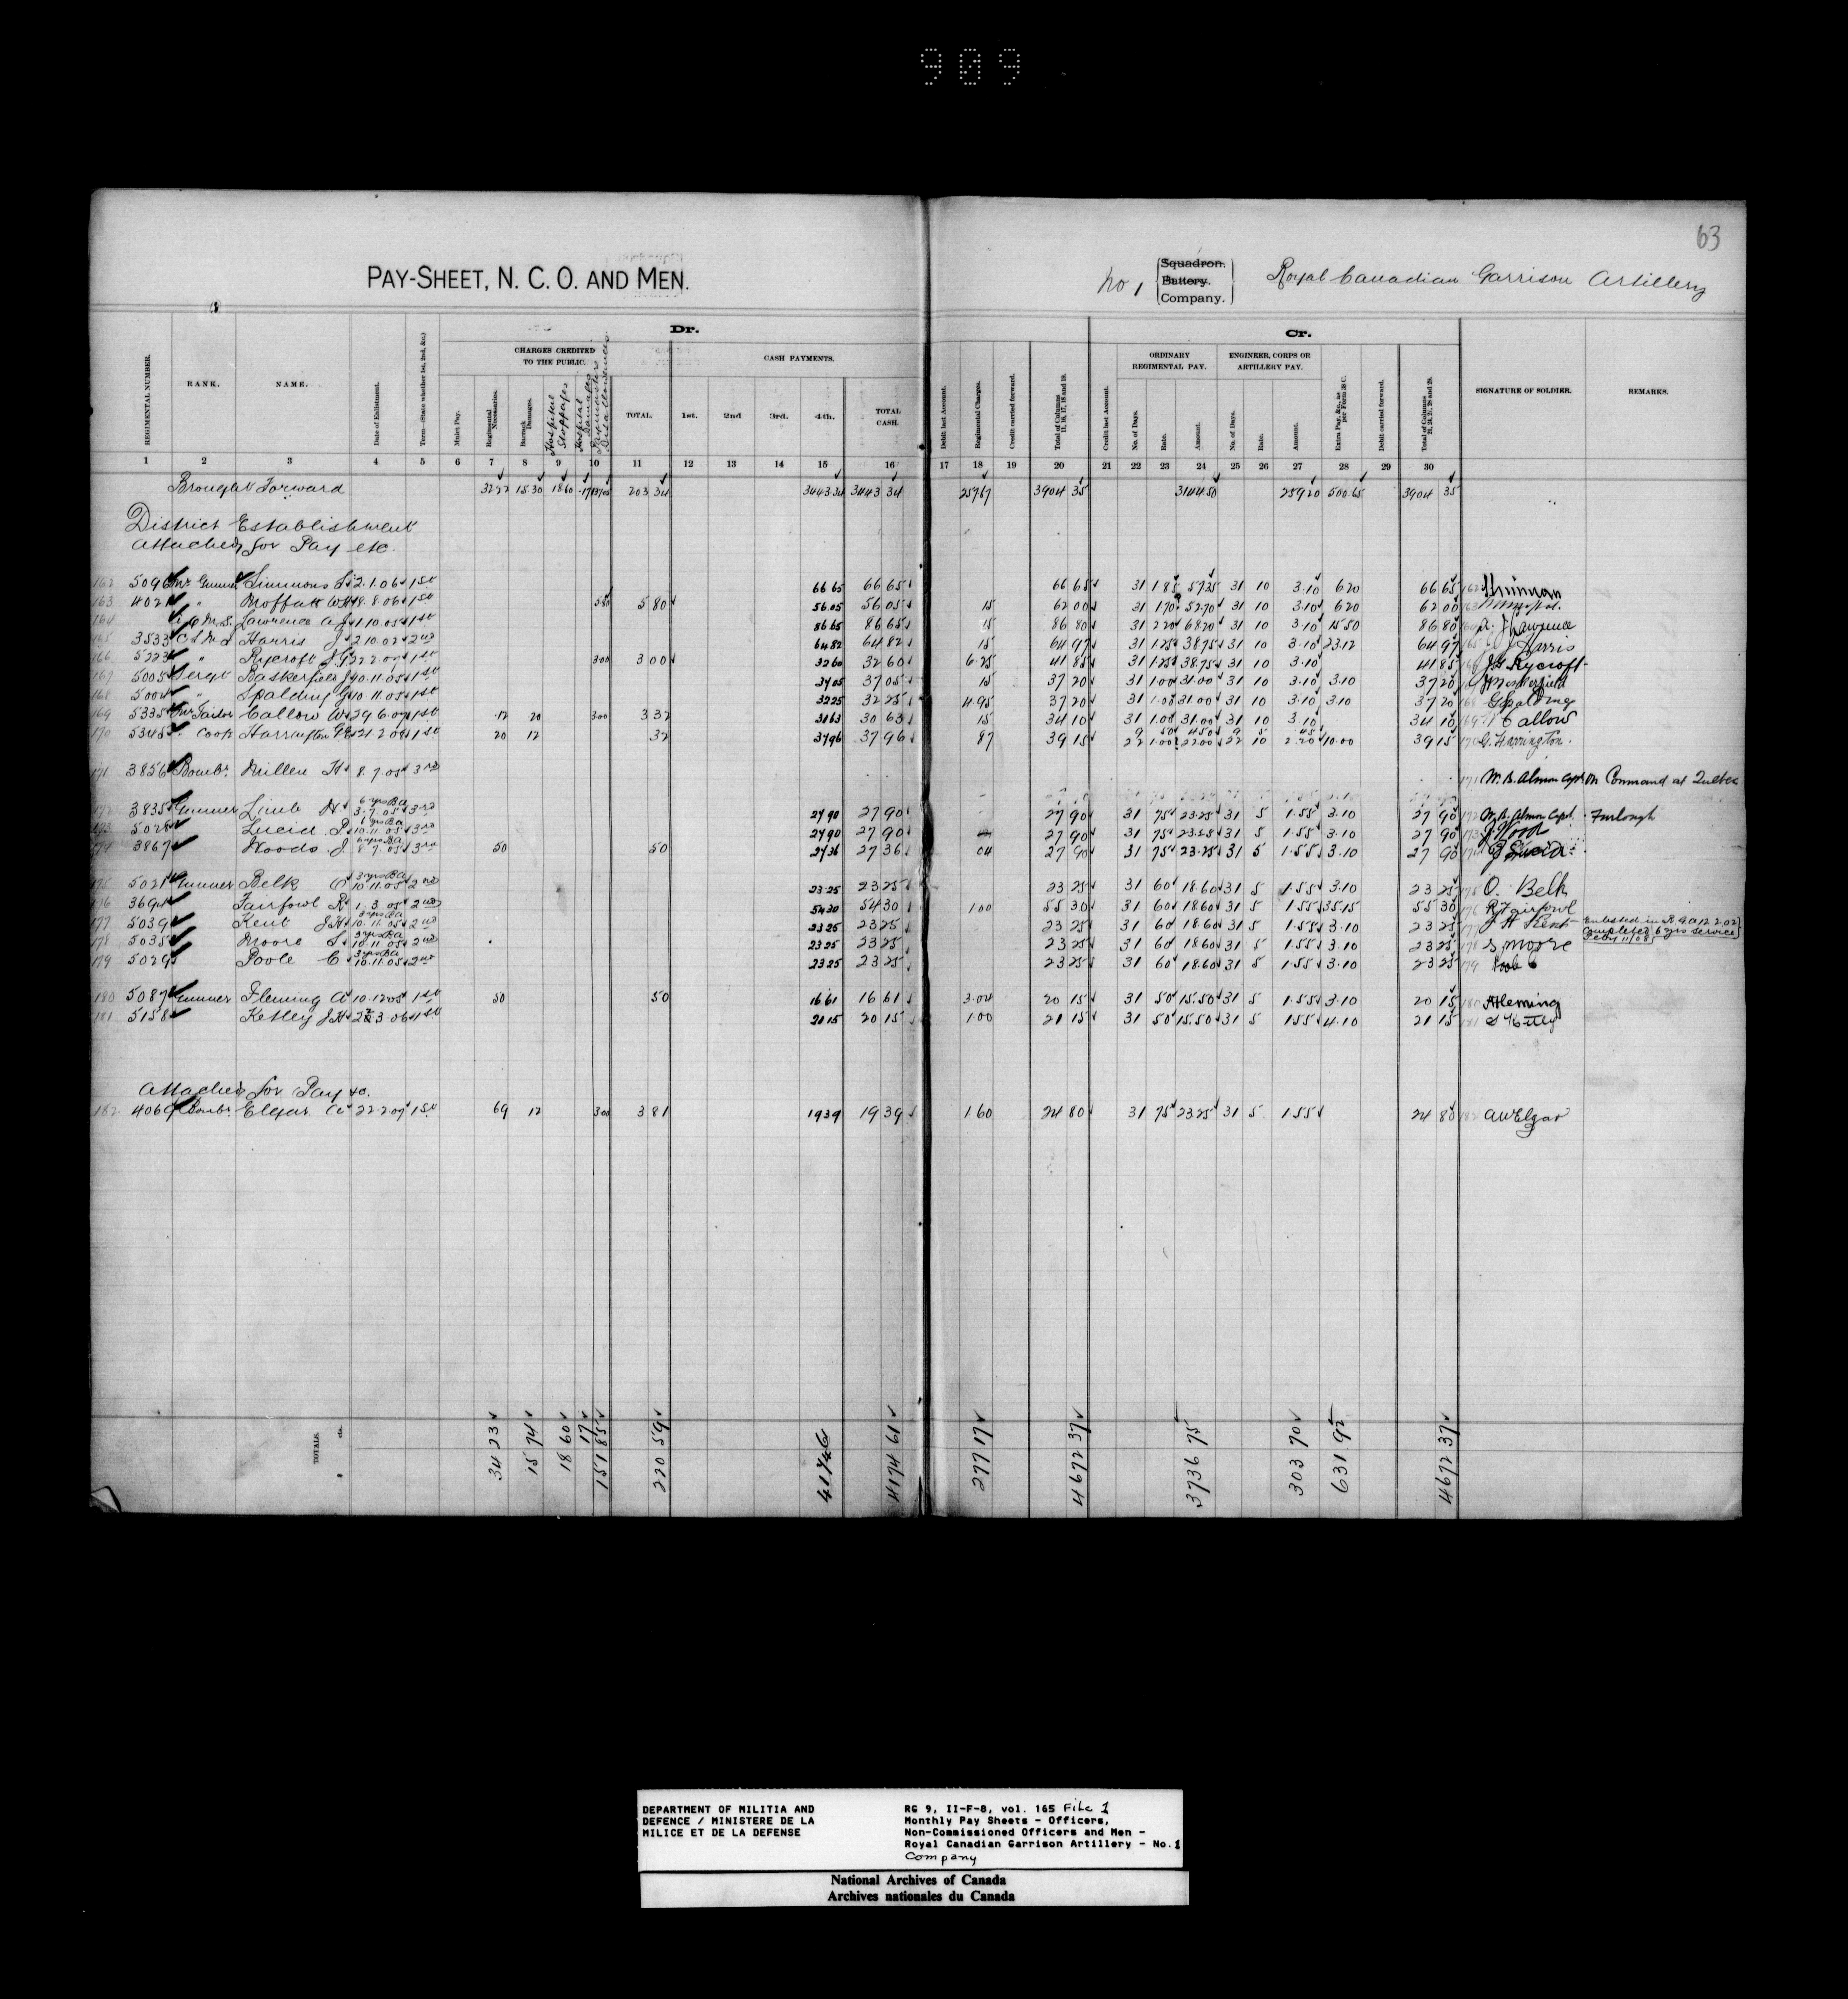 909
63
PAY-SHEET, N. C. O. AND MEN.
No 1 Squadron. Battery. Company. Royal Canadian Garrison Artillery
Dr. Cr.
CHARGES CREDITED TO THE PUBLIC. CASH PAYMENTS. ORDINARY REGIMENTAL PAY. ENGINEER, CORPS OR ARTILLERY PAY.
REGIMENTAL NUMBER. RANK. NAME. Date of Enlistment. Term—State whether 1st, 2nd, &c.) Mulct Pay. Regimental Necessaries. Barrack Damages. Hospital Stoppages Hospital Damages Paymasters Disallowances TOTAL. 1st. 2nd 3rd. 4th. TOTAL CASH. Debit last Account. Regimental Charges. Credit carried forward. Total of Columns 11, 16, 17, 18 and 19. Credit last Account. No. of Days. Rate. Amount. No. of Days. Rate. Amount. Extra Pay, &c., as per Form 38 C. Debit carried forward. Total of Columns 21, 24, 27, 28 and 29. SIGNATURE OF SOLDIER. REMARKS.
1 2 3 4 5 6 7 8 9 10 11 12 13 14 15 16 17 18 19 20 21 22 23 24 25 26 27 28 29 30
Brought Forward 3222 1530 1860 .17 13705 203 34 3443 34 3443 34 25767 3904 35 314450 25920 50065 3904 35
District Establishment
attached for Pay etc.
162 5096 Mr Gunner Simmons S 2.1.06 1st 66 65 66 65 66 65 31 1.85 57.35 31 10 3.10 620 66 65 162
163 4021 " Moffatt W H 8.8.06 1st 580 5 80 56.05 56 05 15 62 00 31 1.70 52.70 31 10 3.10 620 62 00 163
164 Q M S Lawrence A J 1.10.05 1st 86 65 86 65 15 86 80 31 2.20 68.20 31 10 3.10 15.50 86 80 164 A. J Lawrence
165 3533 C S M I Harris J 2.10.02 2nd 64 82 64 82 15 64 97 31 1.25 38.75 31 10 3.10 23.12 64 97 165 J Harris
166 5223 " Rycroft J G 22.2.07 1st 300 3 00 32 60 32 60 6.25 41 85 31 1.25 38.75 31 10 3.10 41 85 166 J G Rycroft
167 5005 Sergt Baskerfield J 10.11.05 1st 37 05 37 05 15 37 20 31 1.00 31.00 31 10 3.10 3.10 37 20
168 5004 " Spalding G 10.11.05 1st 32 25 32 25 4.95 37 20 31 1.00 31.00 31 10 3.10 3.10 37 20 168 G Spalding
169 5335 Mr Tailor Callow W 29.6.07 1st .12 20 300 3 32 31 63 30 63 15 34 10 31 1.00 31.00 31 10 3.10 34 10 169 W Callow
170 5348 Cook Harrington G E 21.2.08 1st 20 12 32 37 96 37 96 87 39 15 9 22 50 1.00 4.50 22.00 9 22 5 10 45 2.20 10.00 39 15 170 G. Harrington.
171 3856 Bombr Miller H 8.7.05 3rd 171 W. B. Almon Capt On Command at Quebec
172 3835 Gunner Limb H 6 yrs B.A. 3.7.05 3rd 27 90 27 90 27 90 31 75 23.25 31 5 1.55 3.10 27 90 172 W. B. Almon Capt. Furlough
173 5028 Lucia P 6 yrs B.A. 10.11.05 3rd 27 90 27 90 27 90 31 75 23.25 31 5 1.55 3.10 27 90 173 J Wood
174 3867 Woods J 6 yrs B.A. 8.7.05 3rd 50 50 27 36 27 36 04 27 90 31 75 23.25 31 5 1.55 3.10 27 90 174 P Lucia
175 5021 Gunner Belk O 3 yrs B.A. 10.11.05 2nd 23 25 23 25 23 25 31 60 18.60 31 5 1.55 3.10 23 25 175 O. Belk
176 3694 Fairfowl R 1.3.05 2nd 54 30 54 30 1.00 55 30 31 60 18.60 31 5 1.55 35.15 55 30 176 R Fairfowl
177 5039 Kent J H 3 yrs B.A. 10.11.05 2nd 23 25 23 25 23 25 31 60 18.60 31 5 1.55 3.10 23 25 177 J H Kent Enlisted in R.G.A 12.2.02 Completed 6 yrs service Feby 11/08
178 5035 Moore S 3 yrs B.A. 10.11.05 2nd 23 25 23 25 23 25 31 60 18.60 31 5 1.55 3.10 23 25 178 S Moore
179 5029 Poole C 3 yrs B.A. 10.11.05 2nd 23 25 23 25 23 25 31 60 18.60 31 5 1.55 3.10 23 25 179 Poole C
180 5087 Gunner Fleming A 10.12.05 1st 50 50 16 61 16 61 3.04 20 15 31 50 15.50 31 5 1.55 3.10 20 15 180 A Fleming
181 5158 Ketley J H 3.06 1st 20 15 20 15 1.00 21 15 31 50 15.50 31 5 1.55 4.10 21 15 181
Attached for Pay &c.
182 4069 Bombr Elgar A 22.2.07 1st 69 12 300 3 81 19 39 19 39 1 60 24 80 31 75 23.25 31 5 1.55 24 80 182 A W Elgar
TOTALS. 34 23 15 74 18 60 17 151 85 220 59 4174 61 277 17 4672 37 3736 75 303 70 631 92 4672 37
DEPARTMENT OF MILITIA AND DEFENCE / MINISTERE DE LA MILICE ET DE LA DEFENSE
RG 9, II-F-8, vol. 165 File 1
Monthly Pay Sheets - Officers,
Non-Commissioned Officers and Men -
Royal Canadian Garrison Artillery - No.1
Company
National Archives of Canada
Archives nationales du Canada